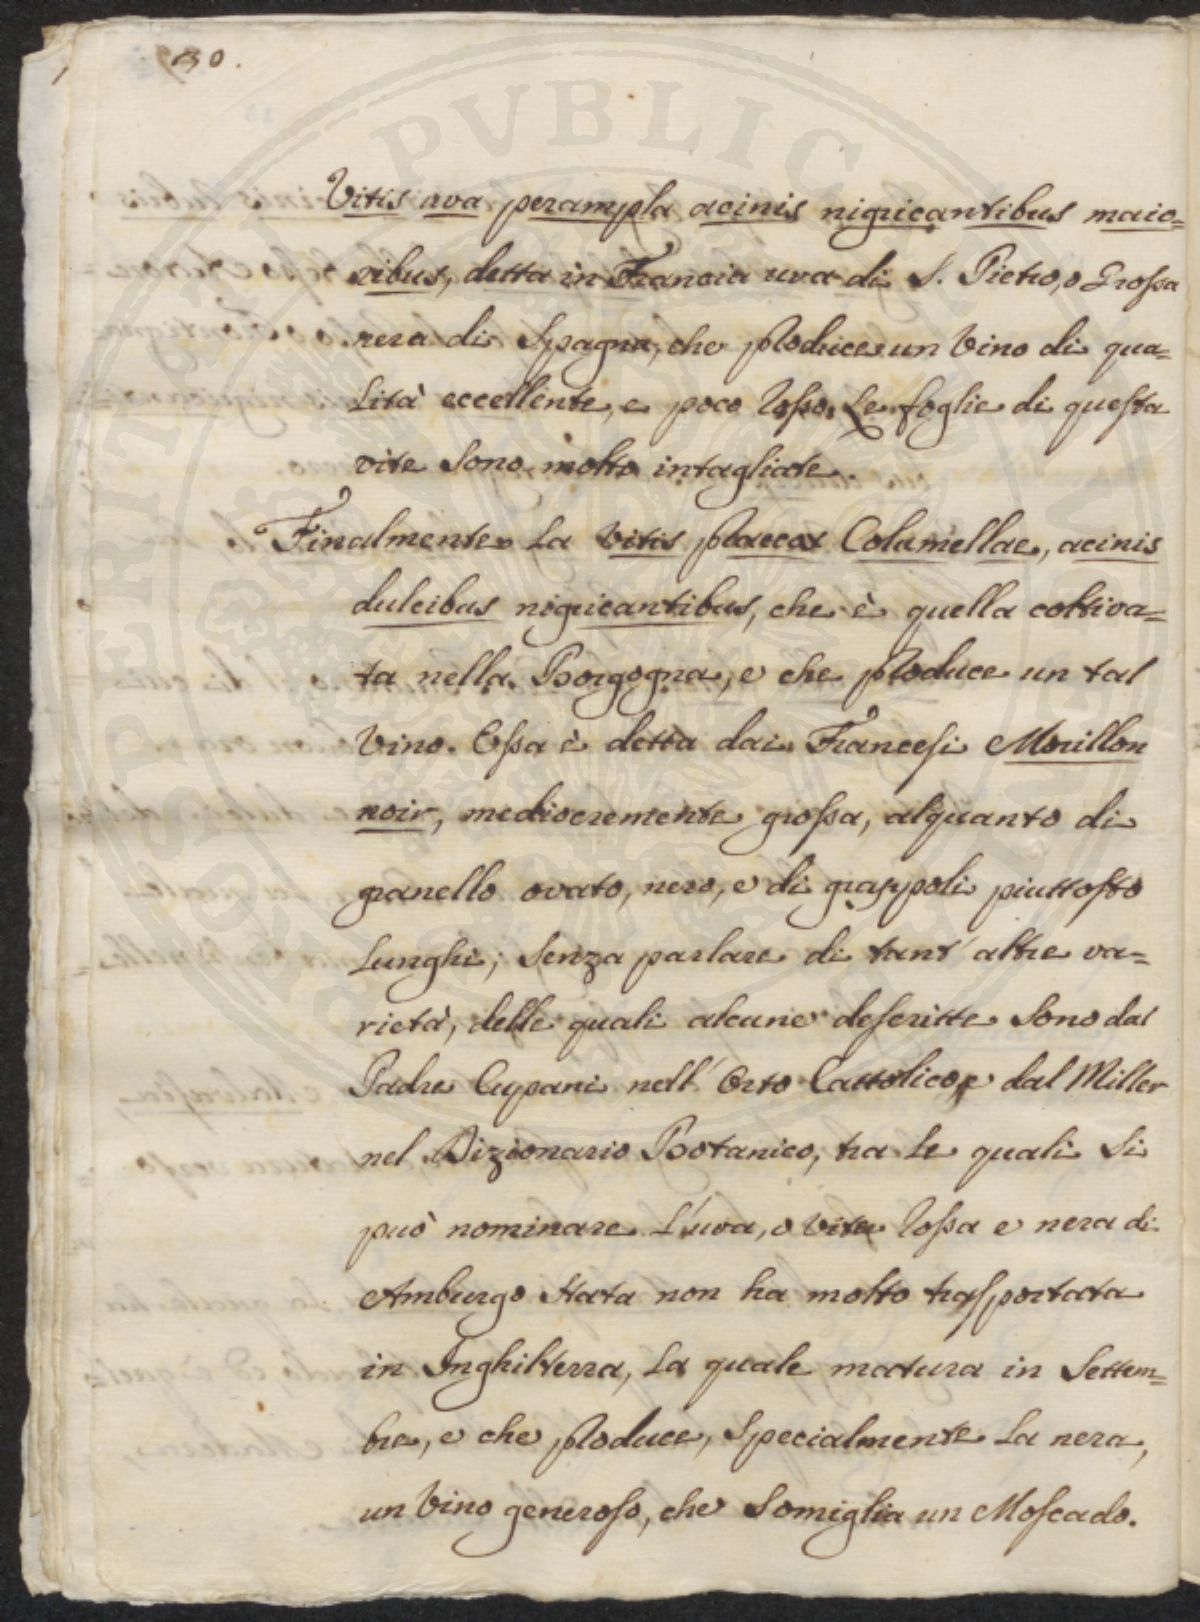 30.
Vitis uva perampla acinis nigricantibus maio=
ribus, detta in Francia uva di S. Pietro, o Grossa
nera di Spagna, che produce un Vino di qua=
lità eccellente, e poco rosso. Le foglie di questa
vite sono molto intagliate.
Finalmente la Vitis praecox Columellae, acinis
dulcibus nigricantibus, che è quella coltiva=
ta nella Borgogna, e che produce un tal
Vino. Essa è detta dai Francesi Morillon
noir, mediocremente grossa, alquanto di
granello ovato, nero, e di grappoli piuttosto
lunghi; senza parlare di tant' altre va=
rietà, delle quali alcune descritte sono dal
Padre Cupani nell' Orto Cattolico, e dal Miller
nel Dizionario Botanico, tra le quali si
può nominare l'uva, o vite rossa e nera di
Amburgo stata non ha molto trasportata
in Inghilterra, la quale matura in Settem=
bre, e che produce, specialmente la nera,
un Vino generoso, che somiglia un Moscado.